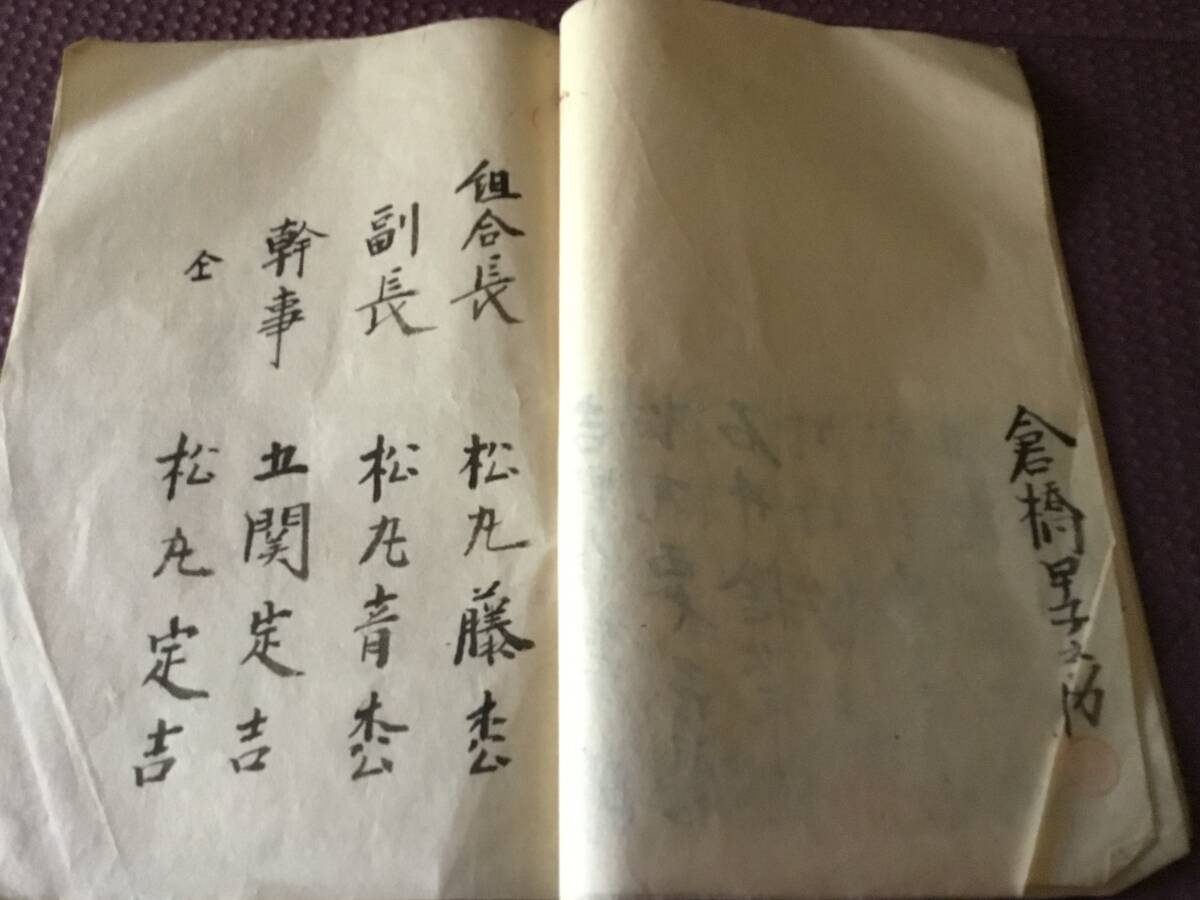 倉橋甲子之助
組合長 松丸藤松
副長 松丸音松
幹事 五関定吉
仝 松丸定吉